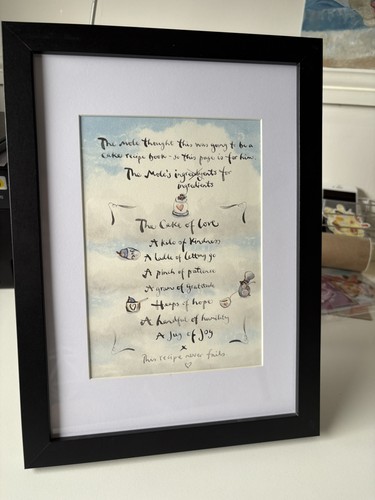 The Mole thought this was going to be a
cake recipe book - so this page is for him.
The Mole's ingredients for
ingredients
The Cake of Love
A kilo of kindness
A ladle of letting go
A pinch of patience
A gram of gratitude
Heaps of hope
A handful of humility
A Jug of Joy
x
This recipe never fails